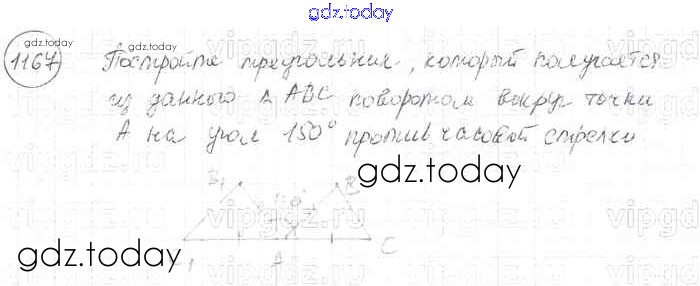 gdz.today
gdz.today
1167 Постройте треугольник, который получается
из данного △ ABC поворотом вокруг точки
A на угол 150° против часовой стрелки
gdz.today
B₁ B
gdz.today
A C